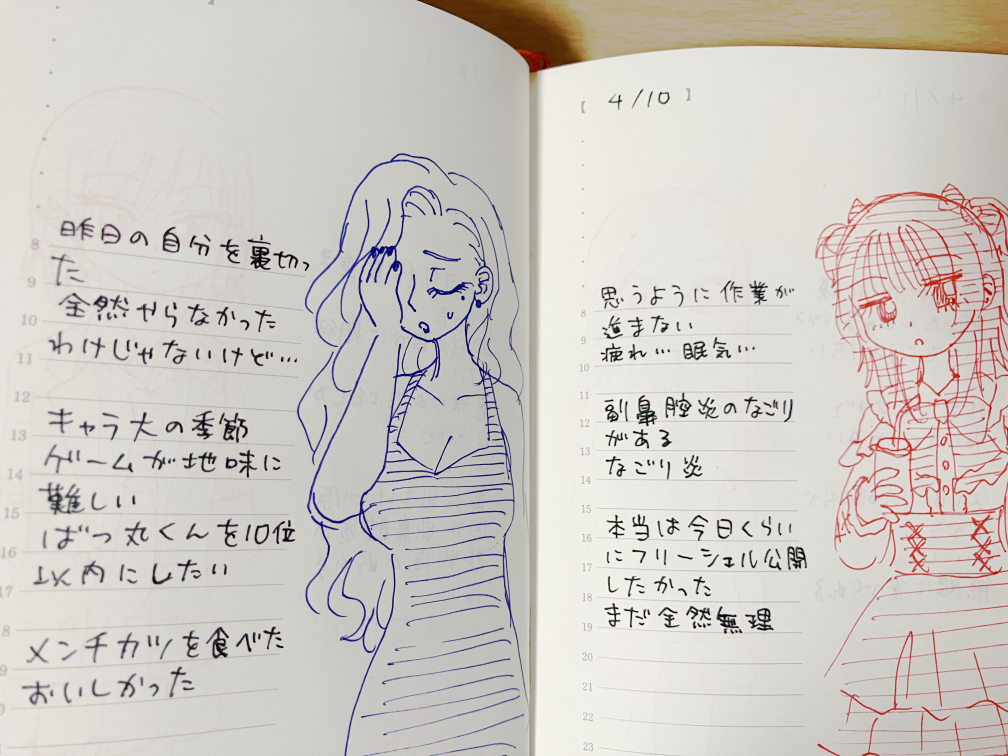 昨日の自分を裏切っ
た
全然やらなかった
わけじゃないけど…
キャラ大の季節
ゲームが地味に
難しい
ばつ丸くんを10位
以内にしたい
メンチカツを食べた
おいしかった
8
9
10
11
12
13
14
15
16
17
18
19
[ 4/10 ]
思うように作業が
進まない
疲れ…眠気…
副鼻腔炎のなごり
がある
なごり炎
本当は今日くらい
にフリーシェル公開
したかった
まだ全然無理
8
9
10
11
12
13
14
15
16
17
18
19
20
21
22
23